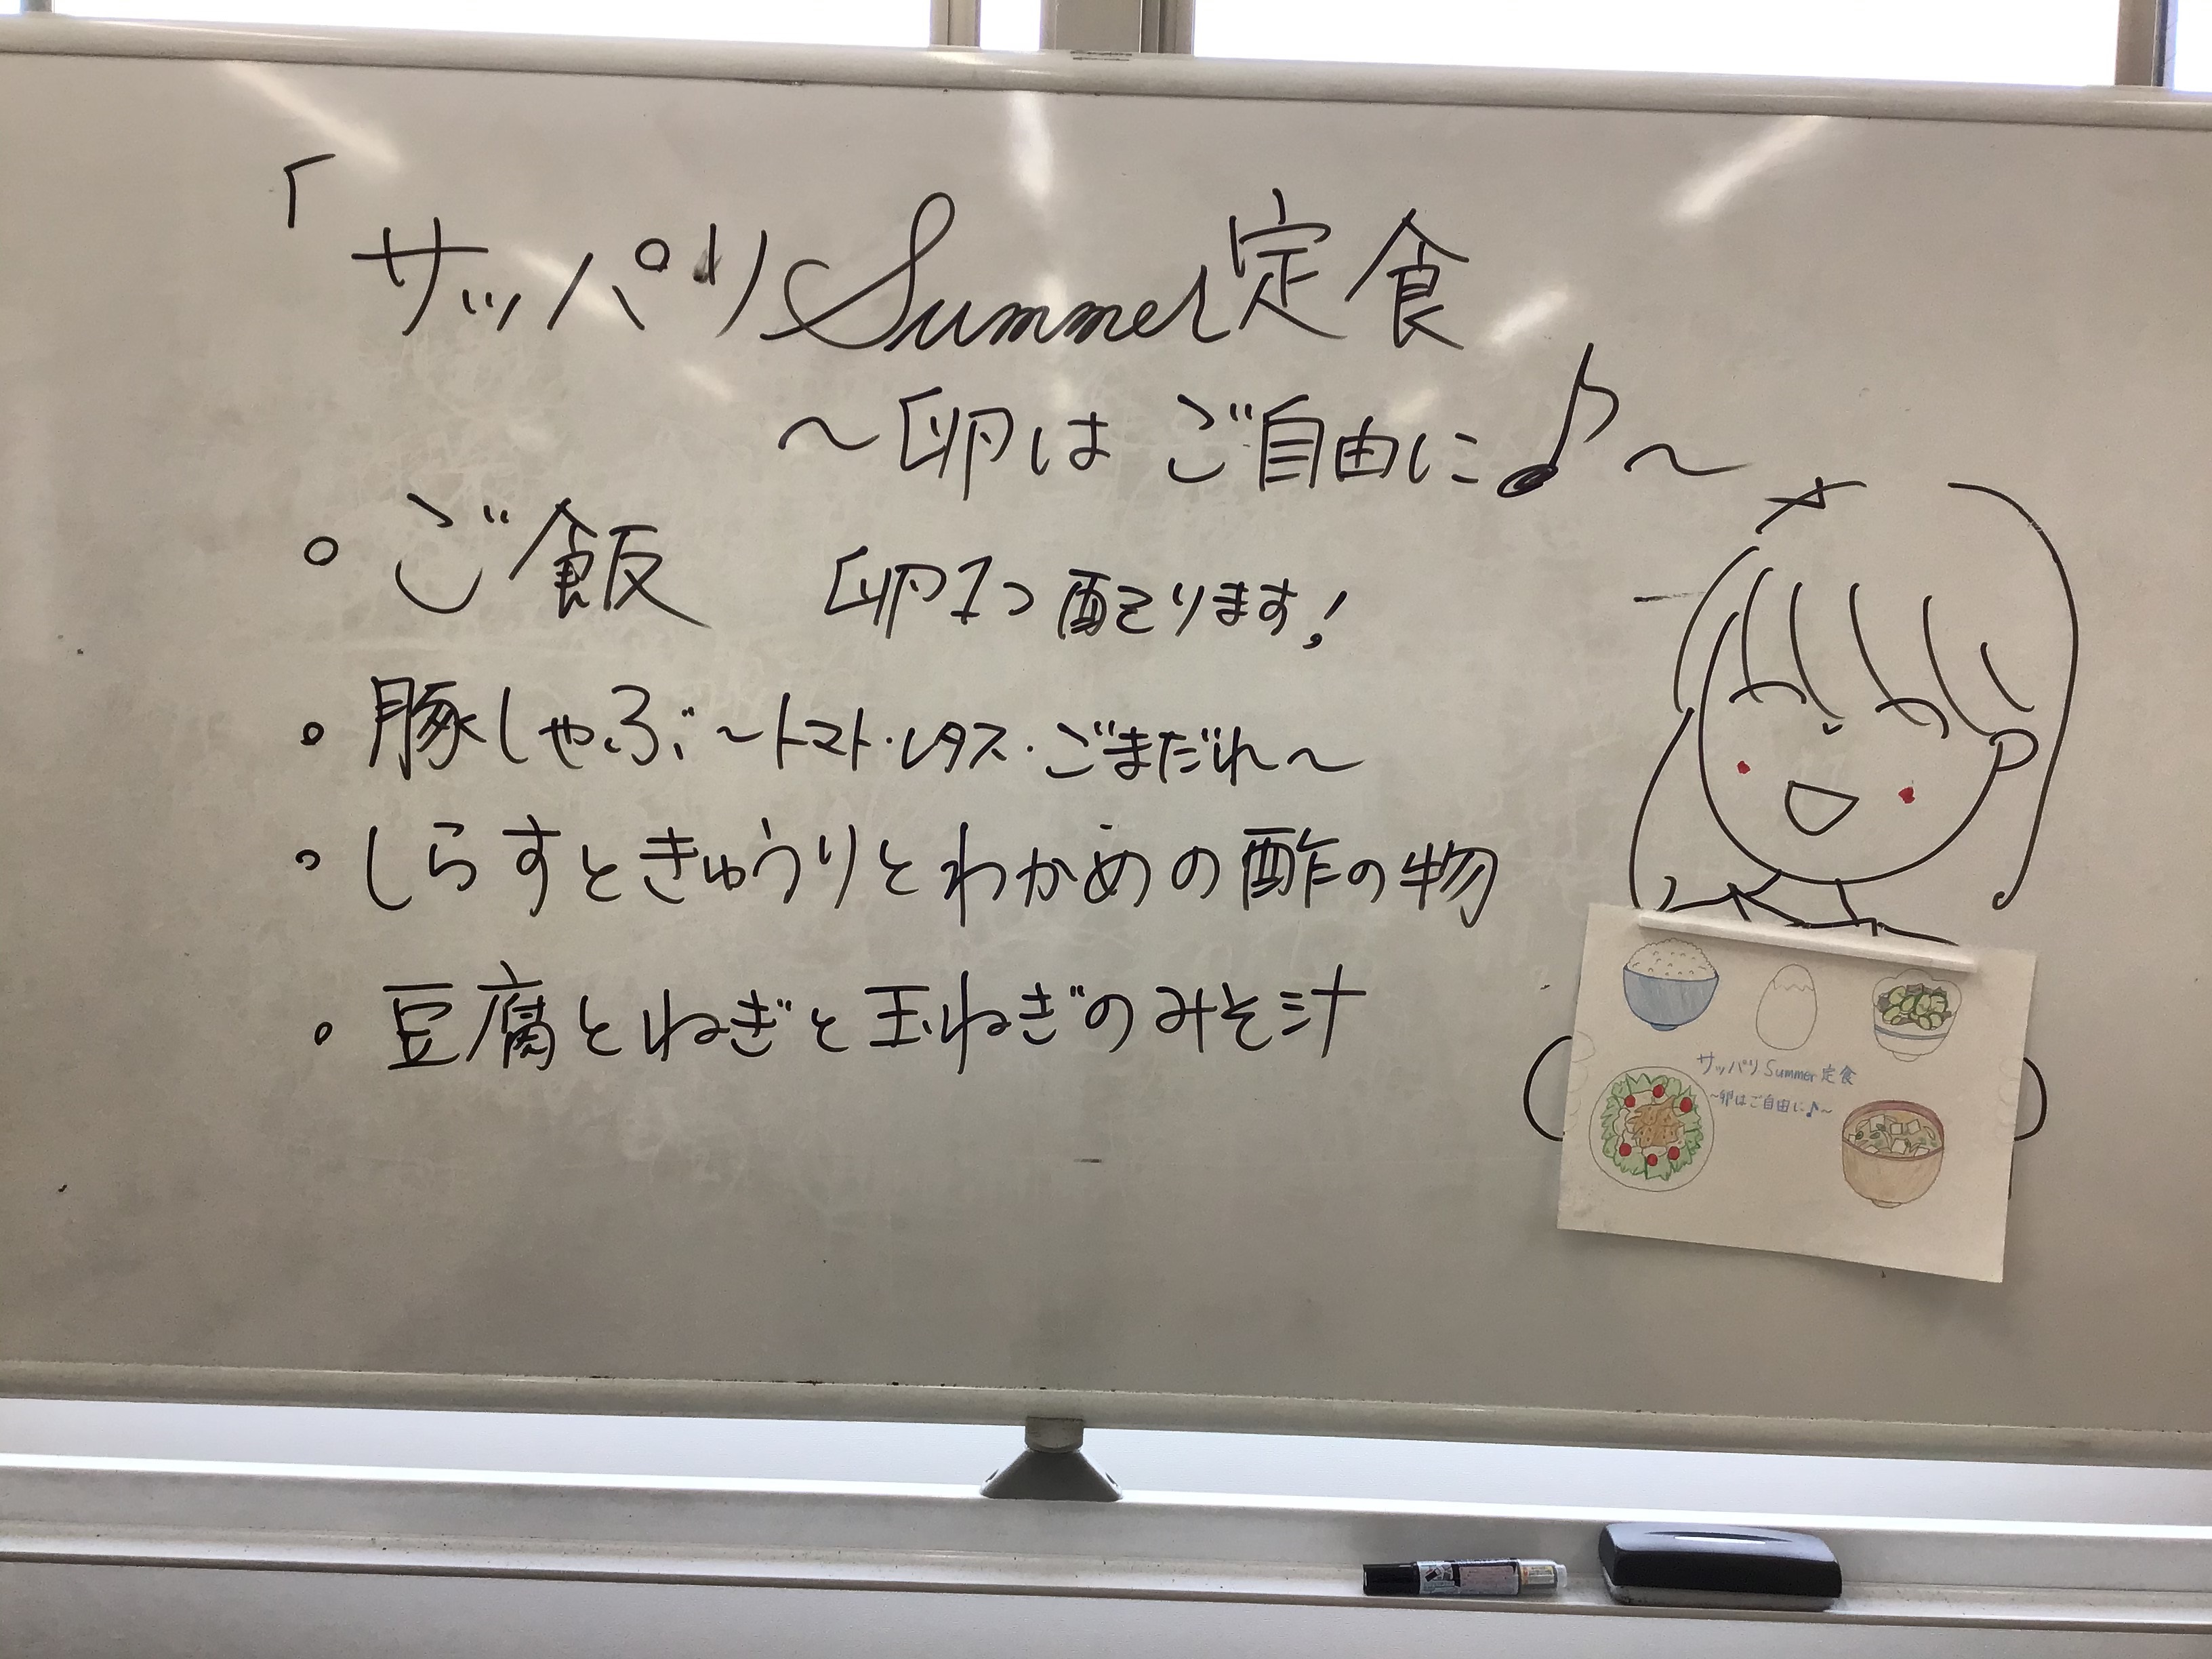 「サッパリSummer定食
〜卵はご自由に♪〜
。ご飯 卵1つ配ります!
。豚しゃぶ〜トマト・レタス・ごまだれ〜
。しらすときゅうりとわかめの酢の物
。豆腐とねぎと玉ねぎのみそ汁
サッパリSummer定食
〜卵はご自由に♪〜